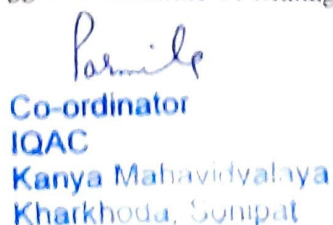 Parmila
Co-ordinator
IQAC
Kanya Mahavidyalaya
Kharkhoda, Sonipat